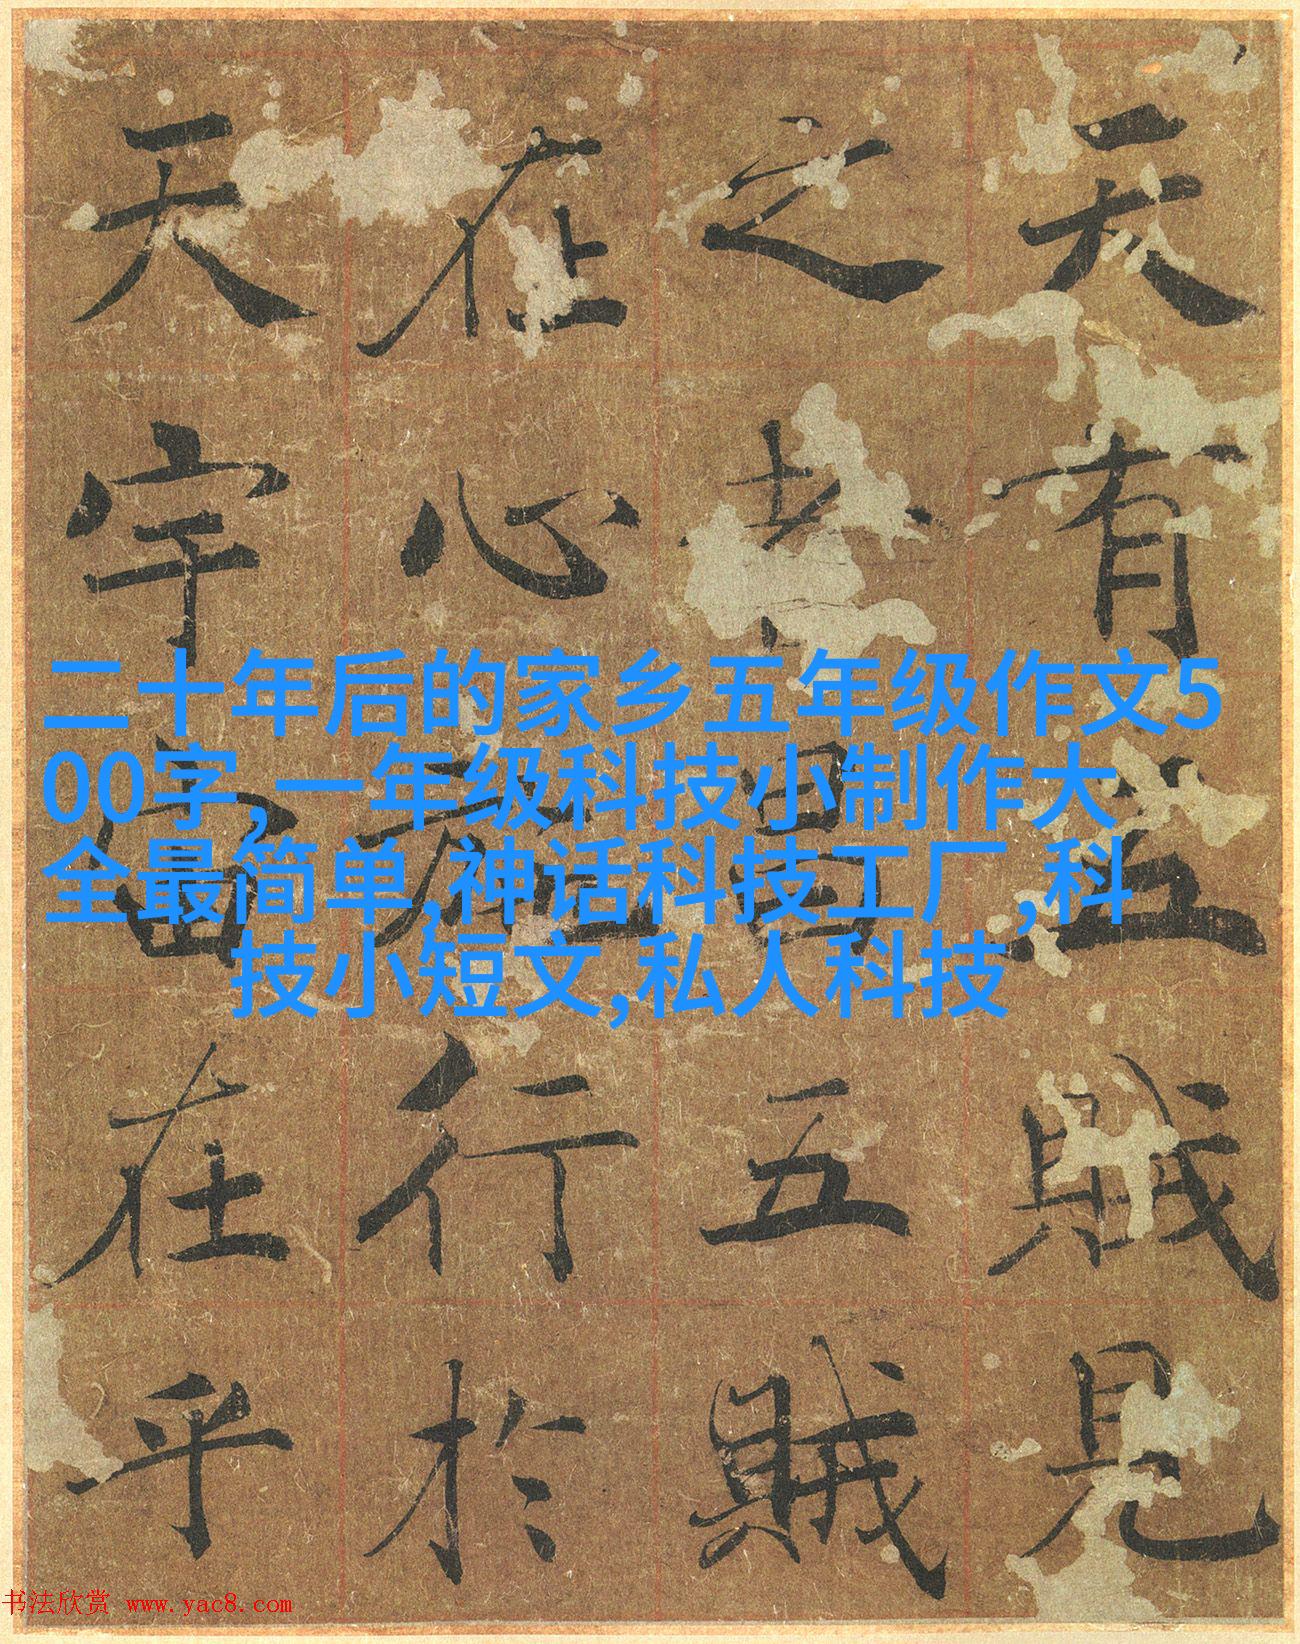 天有五賊見
之者昌五賊
在心施行於
天宇宙在乎
二十年后的家乡五年级作文5
00字,一年级科技小制作大
全最简单,神话科技工厂,科
技小短文,私人科技
书法欣赏 www.yac8.com